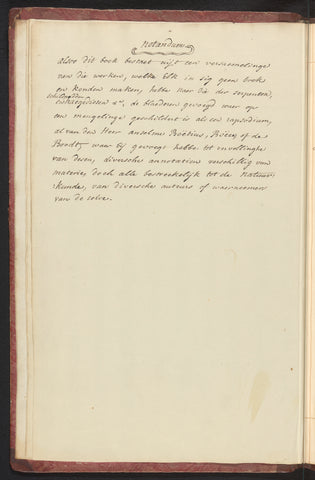 Notandum
alsoo dit boek bestaet uijt een versaemelinge
van die werken, welke Elk in sig geen boek
en konden maken, hebbe naer die der serpenten,
schildpadden
&c, de bladeren gevoegd waer op
een mengelinge geschildert is als een
al van den Heer Anselme Boetius, of de
Boodt, waer bij gevoegt hebbe tot invullinghe
van desen, diverse annotatien verschillig van
materie, doch alle betreckelijk tot de Natuur-
kunde, van diversche auteurs of waernemers
van de selve.